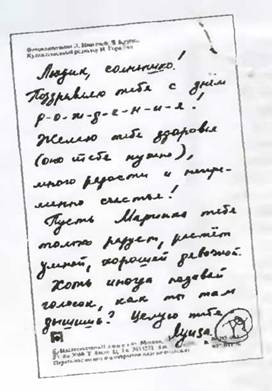 Людик, солнышко!
Поздравляю тебя с днём
р-о-ж-д-е-н-и-я!
Желаю тебе здоровья
(оно тебе нужно),
много радости и непре-
менно счастья!
Пусть Маринка тебя
только радует, растёт
умной, хорошей девочкой.
Хоть иногда подавай
голосок, как ты там
дышишь? Целую тебя
Луиза